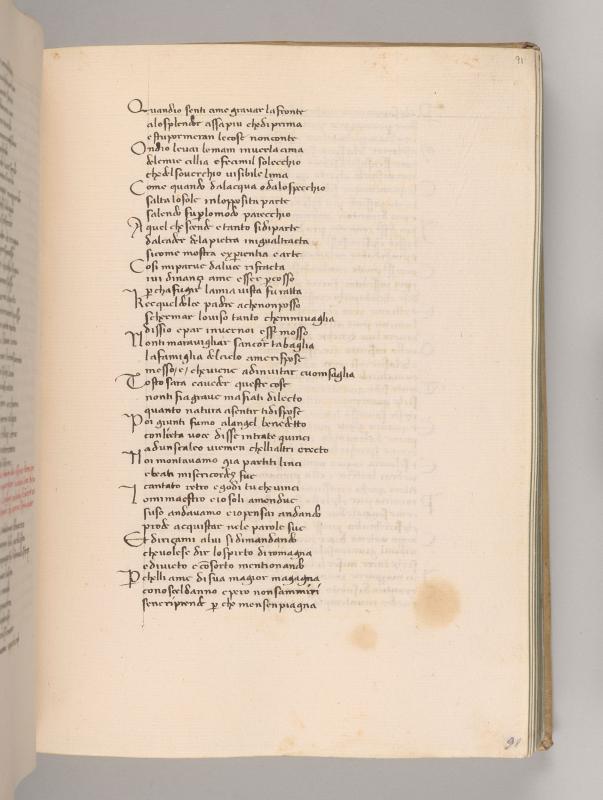 91
Quandio senti ame gravar la fronte
alo splendor assapiu che di prima
e stupor meran le cose non conte
Ondio levai le mani inver la cima
de le mie cillia e fecimil solecchio
che del soverchio visibile lima
Come quando da lacqua o da lo specchio
salta lo sole in lopposita parte
salendo su p lo modo parecchio
A quel che scende e tanto si diparte
dal cader de la pietra in igual tracta
si come mostra experientia e arte
Cosi mi parve da luce rifracta
ivi dinanzi ame esser pcosso
p cha fugir la mia vista fu ratta
Che e quel dolce padre a che non posso
schermar lo viso tanto che mmi vaglia
dissio e par inver noi esser mosso
Non ti maravigliar sancor tabaglia
la famiglia del cielo ame rispose
messo e che viene ad invitar cuom saglia
Tosto sara caveder queste cose
non ti fia grave ma fiati dilecto
quanto natura a sentir ti dispose
Poi giunti fumo a langel benedetto
con lieta voce disse intrate quinci
ad un scaleo vie men che lli altri erecto
Noi montavamo gia partiti linci
e beati misericordes fue
cantato retro e godi tu che vinci
Lo mi maestro e io soli amendue
suso andavamo e io pensai andando
prode acquistar ne le parole sue
Et dirizami a lui si dimandando
che volese dir lo spirto di romagna
e divieto e consorto mentionando
Per chelli ame di sua magior magagna
conoscel danno e pero non sammiri
se ne riprende p che men sen piagna
91